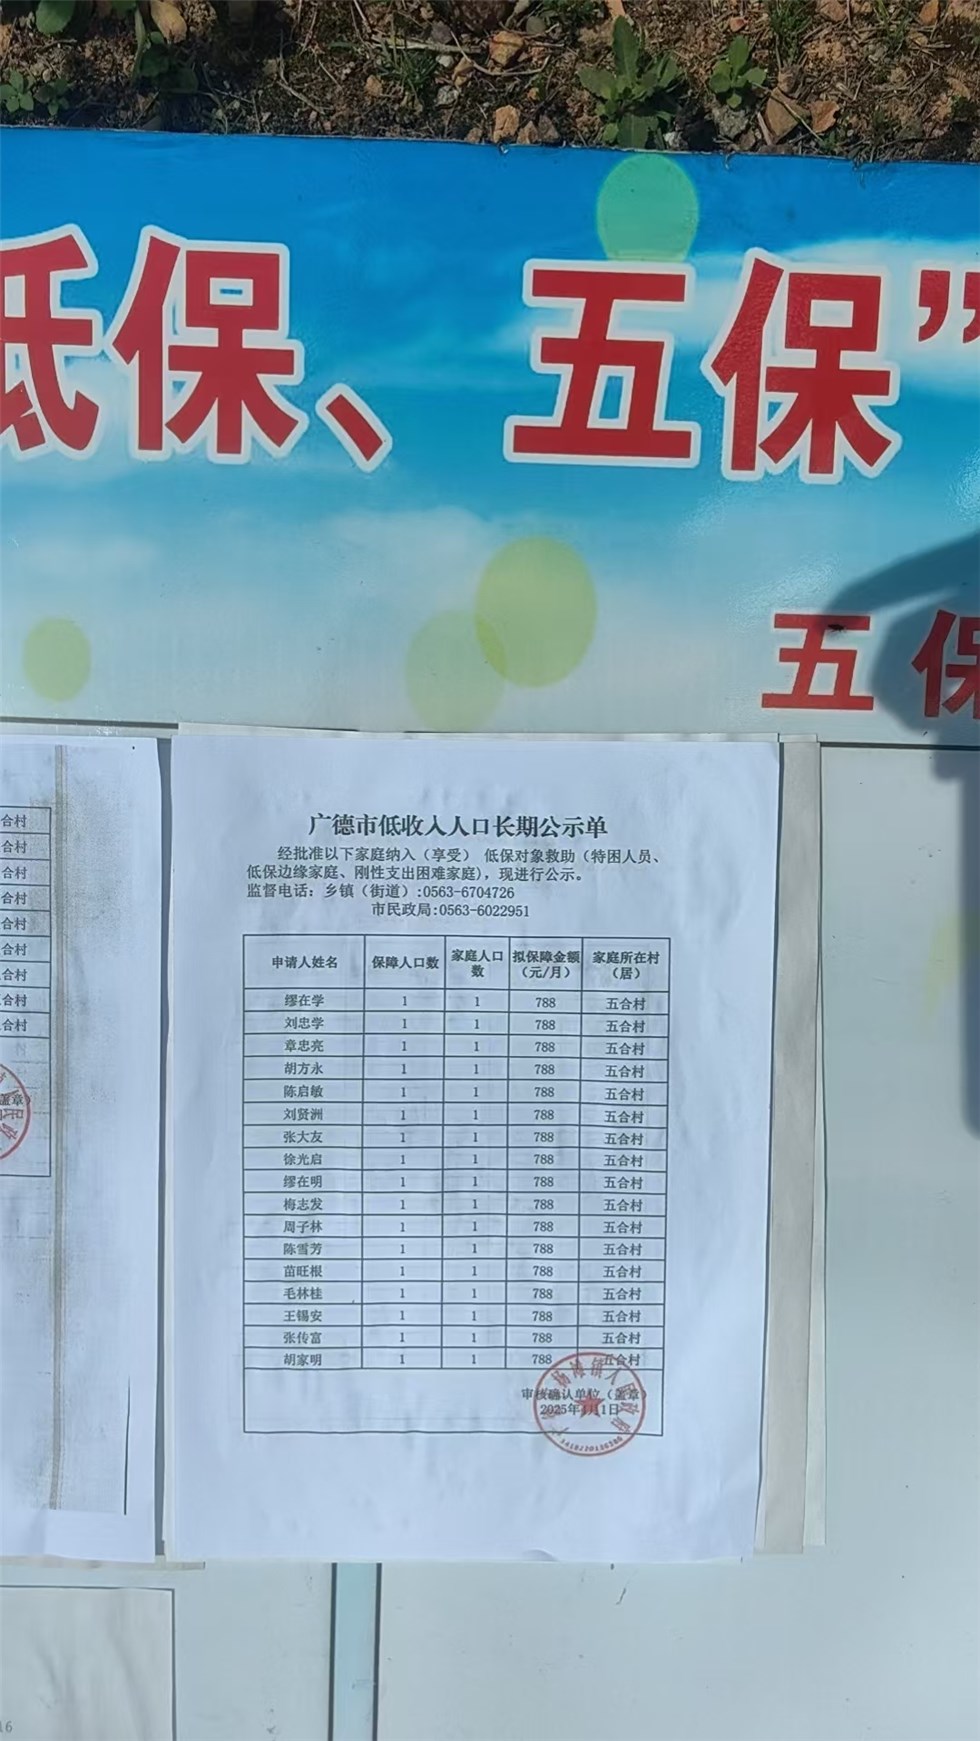 低保、五保”
五保
广德市低收入人口长期公示单
经批准以下家庭纳入（享受） 低保对象救助（特困人员、
低保边缘家庭、刚性支出困难家庭），现进行公示。
监督电话：乡镇（街道）:0563-6704726
市民政局:0563-6022951
申请人姓名 保障人口数 家庭人口数 拟保障金额（元/月） 家庭所在村（居）
缪在学 1 1 788 五合村
刘忠学 1 1 788 五合村
章忠亮 1 1 788 五合村
胡方永 1 1 788 五合村
陈启敏 1 1 788 五合村
刘贤洲 1 1 788 五合村
张大友 1 1 788 五合村
徐光启 1 1 788 五合村
缪在明 1 1 788 五合村
梅志发 1 1 788 五合村
周子林 1 1 788 五合村
陈雪芳 1 1 788 五合村
苗旺根 1 1 788 五合村
毛林桂 1 1 788 五合村
王锡安 1 1 788 五合村
张传富 1 1 788 五合村
胡家明 1 1 788 五合村
审核确认单位（盖章）
2025年 月1日
合村
合村
合村
合村
合村
合村
合村
合村
合村
盖章）
16